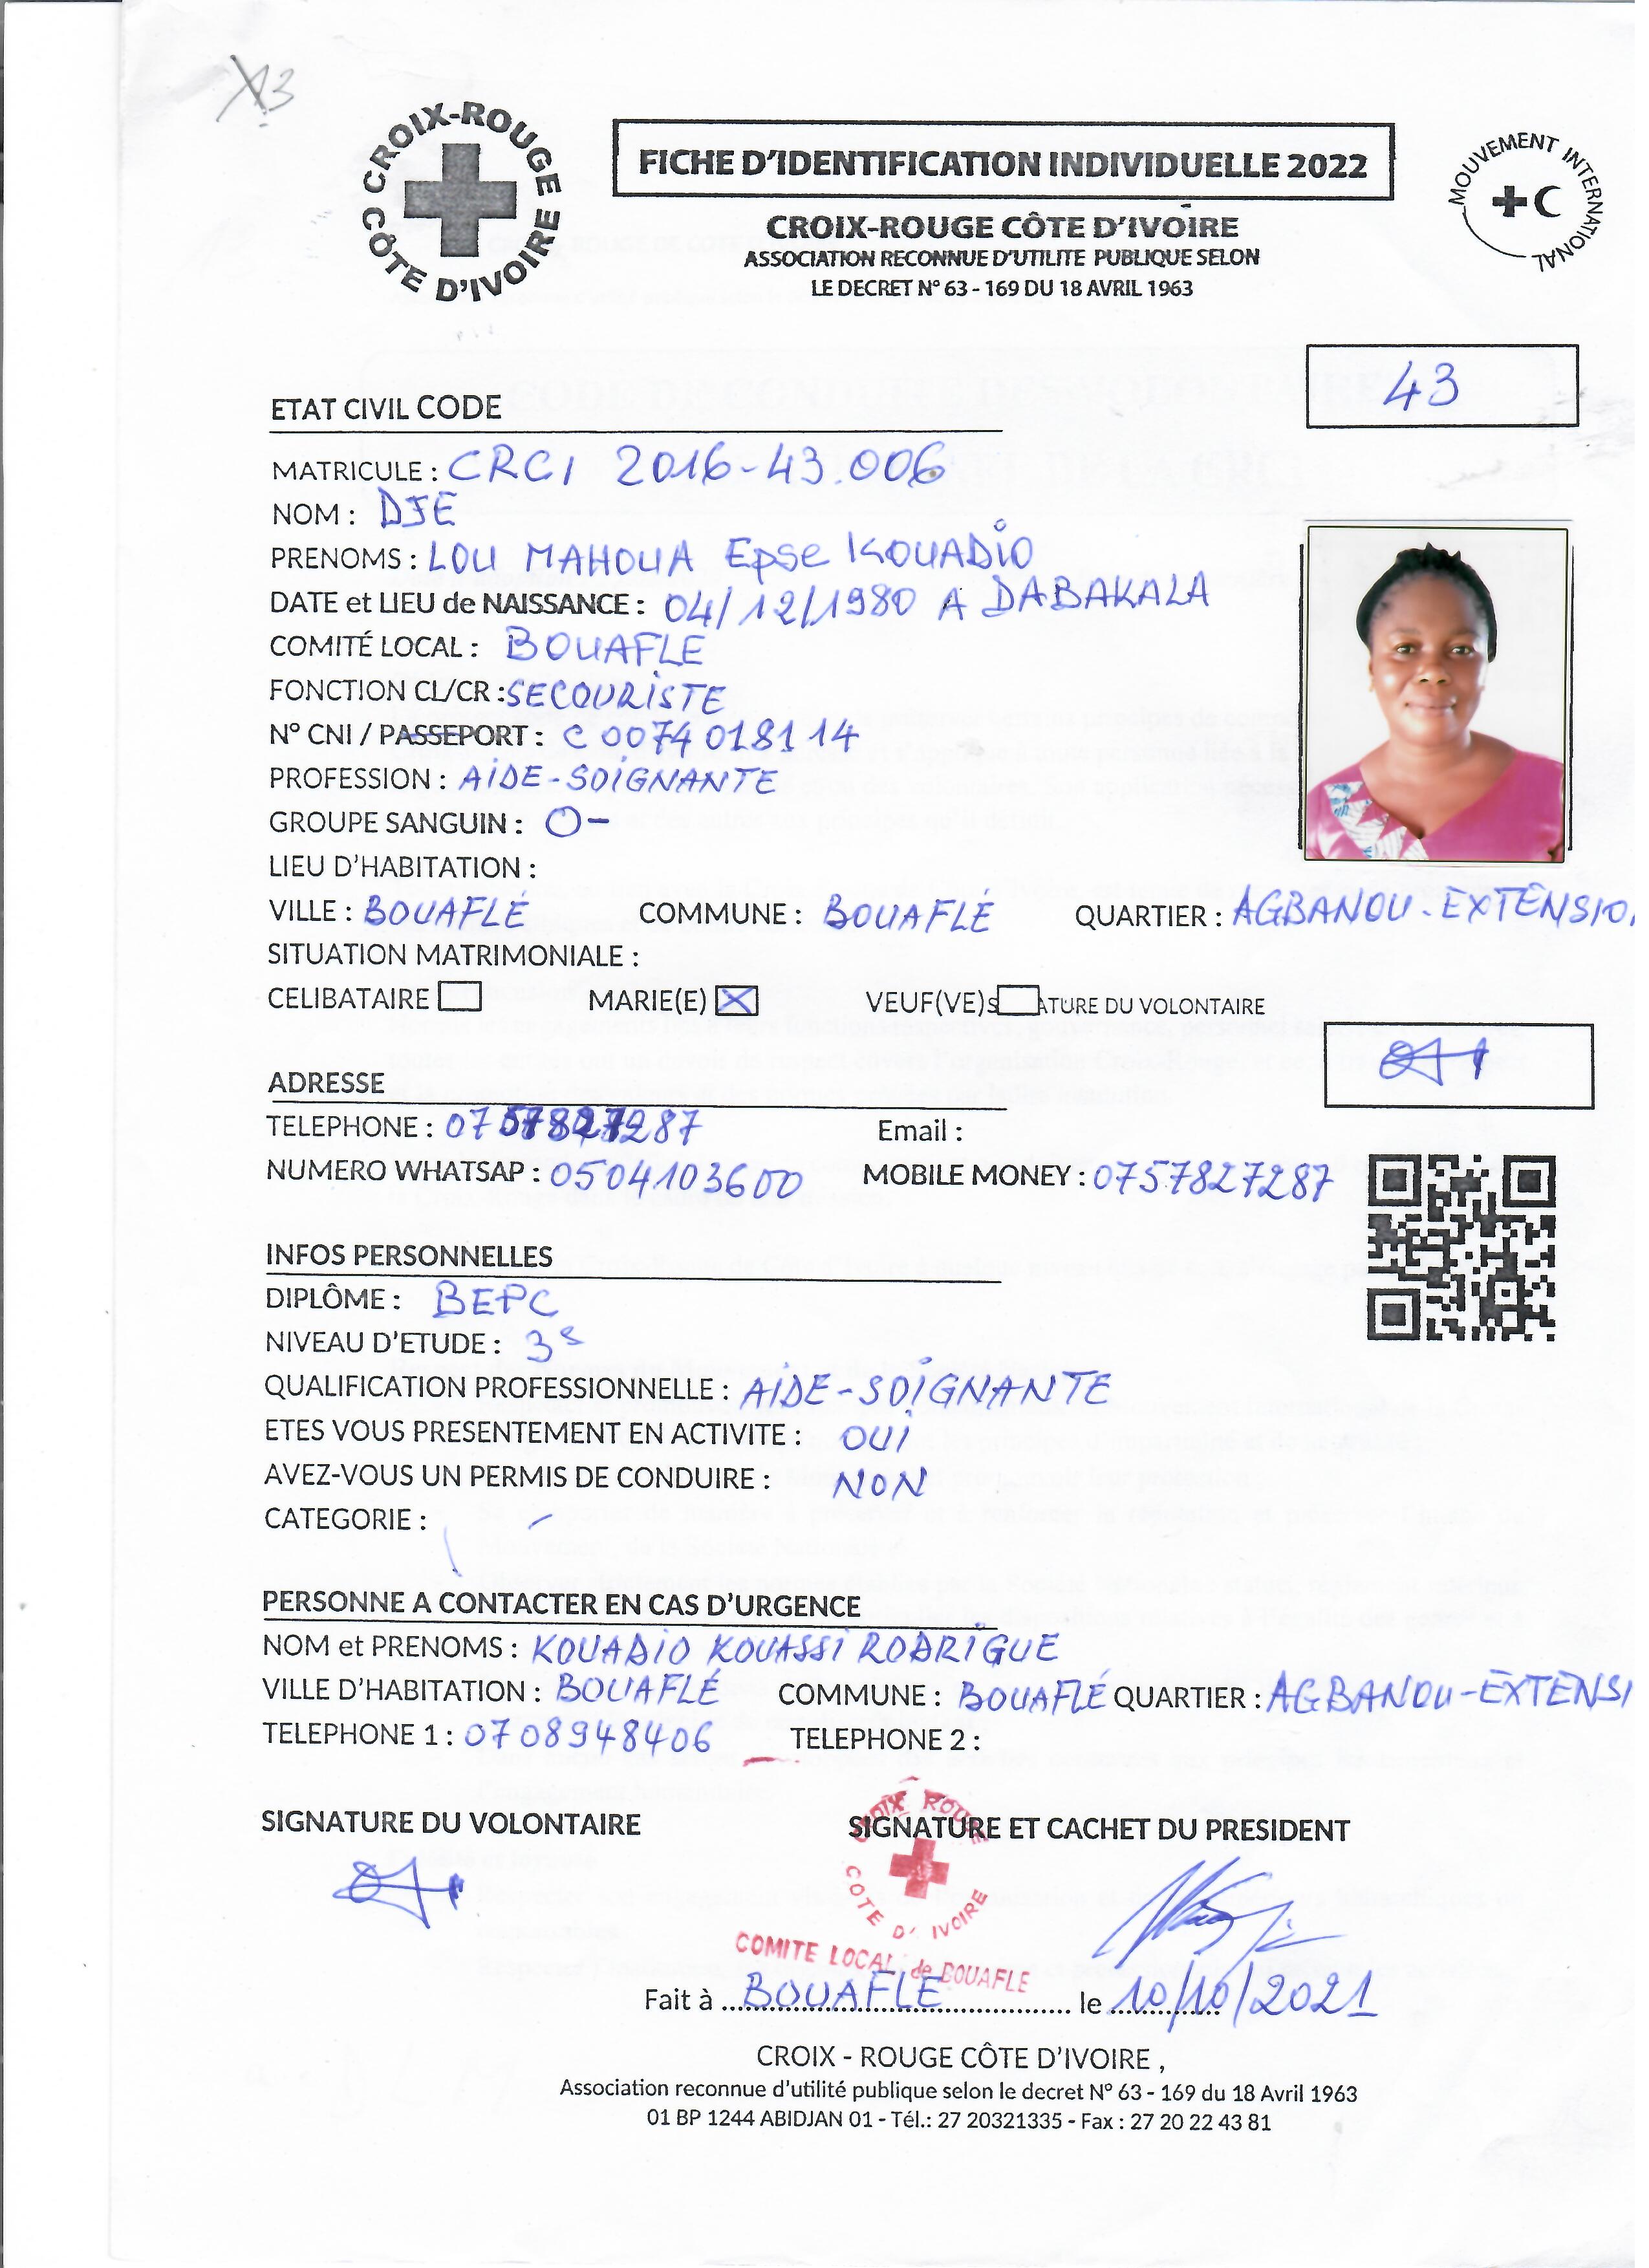 X3
CROIX-ROUGE CÔTE D'IVOIRE
FICHE D'IDENTIFICATION INDIVIDUELLE 2022
MOUVEMENT INTERNATIONAL
CROIX-ROUGE CÔTE D'IVOIRE
ASSOCIATION RECONNUE D'UTILITE PUBLIQUE SELON
LE DECRET N° 63 - 169 DU 18 AVRIL 1963
43
ETAT CIVIL CODE
MATRICULE : CRCI 2016-43.006
NOM : DJE
PRENOMS : LOU MAHOUA Epse KOUADIO
DATE et LIEU de NAISSANCE : 04/12/1980 A DABAKALA
COMITÉ LOCAL : BOUAFLE
FONCTION CL/CR : SECOURISTE
N° CNI / PASSEPORT : C 0074 0181 14
PROFESSION : AIDE-SOIGNANTE
GROUPE SANGUIN : O-
LIEU D'HABITATION :
VILLE : BOUAFLÉ COMMUNE : BOUAFLÉ QUARTIER : AGBANOU-EXTENSIO
SITUATION MATRIMONIALE :
CELIBATAIRE MARIE(E) X VEUF(VE) S ATURE DU VOLONTAIRE
ADRESSE
TELEPHONE : 07 287 Email :
NUMERO WHATSAP : 0504103600 MOBILE MONEY : 0757827287
INFOS PERSONNELLES
DIPLÔME : BEPC
NIVEAU D'ETUDE : 3e
QUALIFICATION PROFESSIONNELLE : AIDE-SOIGNANTE
ETES VOUS PRESENTEMENT EN ACTIVITE : OUI
AVEZ-VOUS UN PERMIS DE CONDUIRE : NON
CATEGORIE : -
PERSONNE A CONTACTER EN CAS D'URGENCE
NOM et PRENOMS : KOUADIO KOUASSI RODRIGUE
VILLE D'HABITATION : BOUAFLÉ COMMUNE : BOUAFLÉ QUARTIER : AGBANOU-EXTENSI
TELEPHONE 1 : 0708948406 TELEPHONE 2 :
SIGNATURE DU VOLONTAIRE SIGNATURE ET CACHET DU PRESIDENT
CROIX ROUGE COTE D'IVOIRE
COMITE LOCAL de BOUAFLE
Fait à BOUAFLE le 10/10/2021
CROIX - ROUGE CÔTE D'IVOIRE ,
Association reconnue d'utilité publique selon le decret N° 63 - 169 du 18 Avril 1963
01 BP 1244 ABIDJAN 01 - Tél.: 27 20321335 - Fax : 27 20 22 43 81